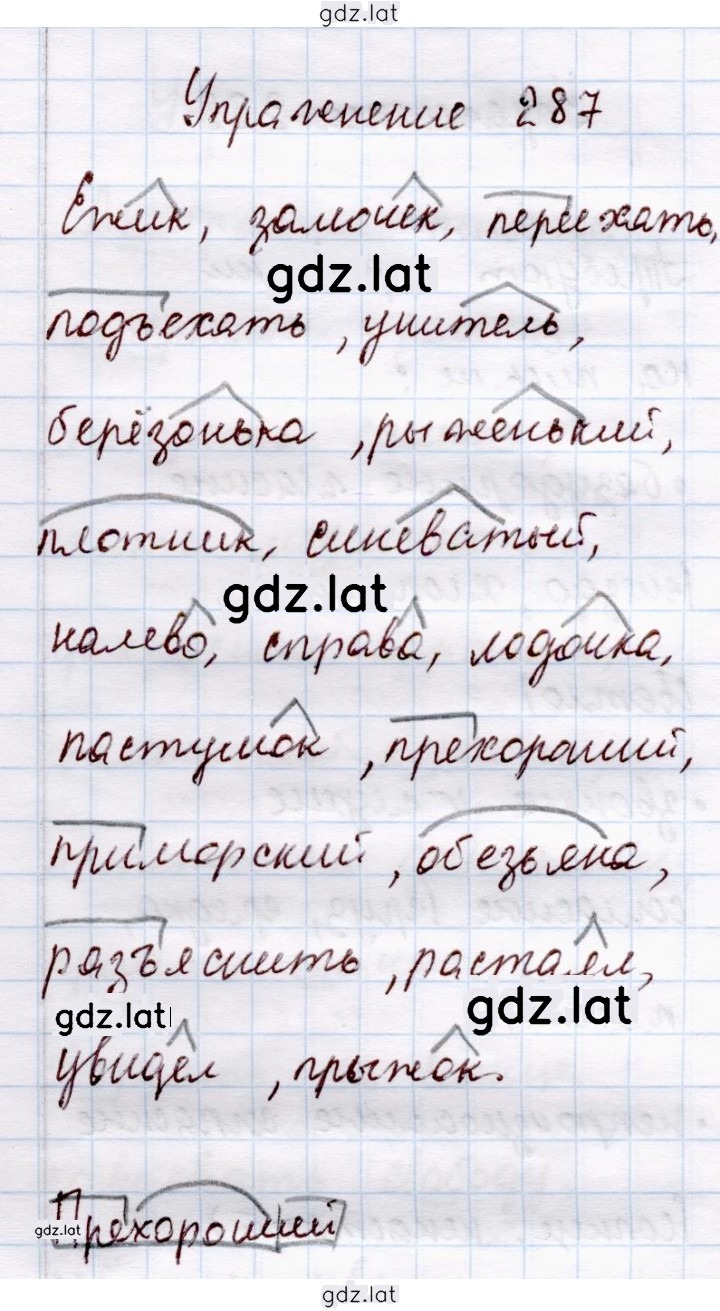 gdz.lat
Упражнение 287
Ёжик, замочек, переехать,
gdz.lat
подъехать, учитель,
берёзонька, рыженький,
плотник, синеватый,
gdz.lat
налево, справа, лодочка,
пастушок, прехороший,
приморский, обезьяна,
разъяснить, растаял,
gdz.lat gdz.lat
увидел, прыжок.
Прехороший
gdz.lat
gdz.lat